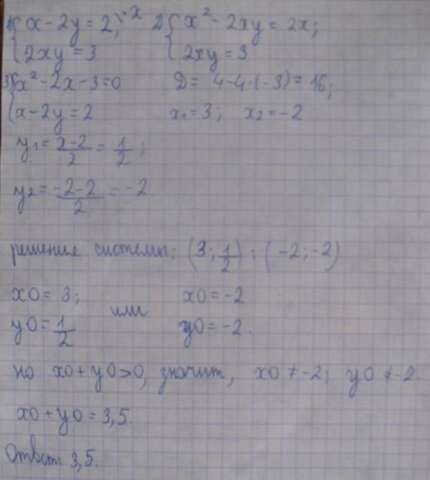 1) x-2y=2; | ·x 2) x²-2xy=2x;
2xy=3 2xy=3
3) x²-2x-3=0 D=4-4·(-3)=16;
x-2y=2 x₁=3; x₂=-2
y₁=x-2/2=1/2;
y₂=-2-2/2=-2
решения системы: (3; 1/2); (-2;-2)
x0=3; или x0=-2
y0=1/2 y0=-2.
но x0+y0>0, значит, x0≠-2; y0≠-2
x0+y0=3,5.
Ответ 3,5.